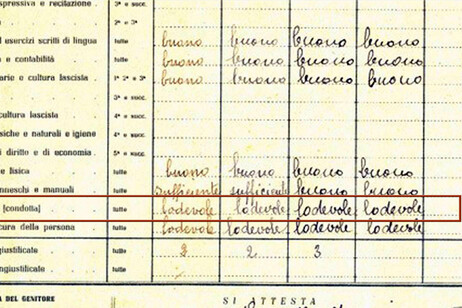 pressiva e recitazione . 3ª e succ.
2ª e 3ª
ed esercizi scritti di lingua tutte buono buono buono buono
e contabilità tutte buono buono buono buono
arie e cultura fascista 1ª 2ª e 3ª buono buono buono buono
3ª e succ.
cultura fascista 4ª e succ.
siche e naturali e igiene 4ª e succ.
di diritto e di economia . 5ª e succ.
e fisica tutte buono buono buono buono
nneschi e manuali tutte sufficiente sufficiente buono buono
[condotta] tutte lodevole lodevole lodevole lodevole
cura della persona tutte lodevole lodevole lodevole lodevole
giustificate tutte 2 3
ngiustificate tutte
A DEL GENITORE SI ATTESTA